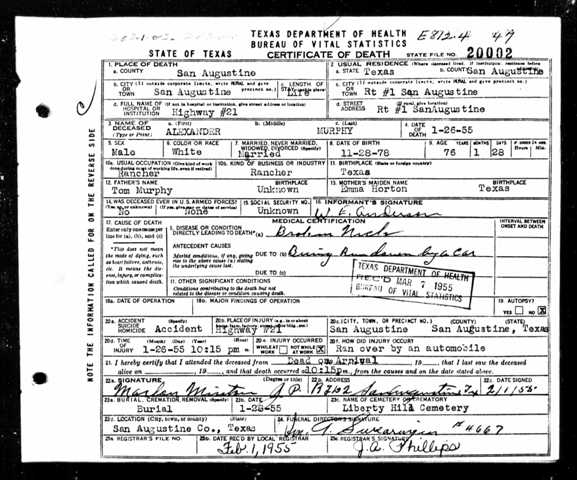 TEXAS DEPARTMENT OF HEALTH
BUREAU OF VITAL STATISTICS
E812.4 47
STATE OF TEXAS CERTIFICATE OF DEATH STATE FILE NO. 20002
1. PLACE OF DEATH 2. USUAL RESIDENCE (Where deceased lived. If institution: residence before
a. COUNTY San Augustine a. STATE Texas b. COUNTY San Augustine
b. CITY (If outside corporate limits, write RURAL and give precinct no.) c. LENGTH OF c. CITY (If outside corporate limits, write RURAL and give precinct no.)
OR TOWN San Augustine STAY Life OR TOWN Rt #1 San Augustine
d. FULL NAME OF (If not in hospital or institution, give street address or location) d. STREET
HOSPITAL OR INSTITUTION Highway #21 ADDRESS Rt #1 SanAugustine
3. NAME OF DECEASED a. (First) b. (Middle) c. (Last) 4. DATE OF DEATH
(Type or Print) ALEXANDER MURPHY 1-26-55
5. SEX 6. COLOR OR RACE 7. MARRIED, NEVER MARRIED, WIDOWED, DIVORCED (Specify) 8. DATE OF BIRTH 9. AGE YEARS MONTHS DAYS
Male White Married 11-28-78 76 1 28
10a. USUAL OCCUPATION (Give kind of work done during most of working life, even if retired) 10b. KIND OF BUSINESS OR INDUSTRY 11. BIRTHPLACE (State or foreign country)
Rancher Rancher Texas
12. FATHER'S NAME BIRTHPLACE 13. MOTHER'S MAIDEN NAME BIRTHPLACE
Tom Murphy Unknown Emma Horton Texas
14. WAS DECEASED EVER IN U.S. ARMED FORCES? 15. SOCIAL SECURITY NO. 16. INFORMANT'S SIGNATURE
No None Unknown W. E. Anderson
17. CAUSE OF DEATH MEDICAL CERTIFICATION INTERVAL BETWEEN
Enter only one cause per line for (a), (b), and (c) I. DISEASE OR CONDITION DIRECTLY LEADING TO DEATH* (a) Broken Neck ONSET AND DEATH
*This does not mean the mode of dying, such as heart failure, asthenia, etc. It means the disease, injury, or complication which caused death.
ANTECEDENT CAUSES
Morbid conditions, if any, giving rise to the above cause (a) stating the underlying cause last.
DUE TO (b) Being Run down by a car
DUE TO (c)
TEXAS DEPARTMENT OF HEALTH
REC'D MAR 7 1955
BUREAU OF VITAL STATISTICS
II. OTHER SIGNIFICANT CONDITIONS
Conditions contributing to the death but not related to the disease or condition causing death.
18a. DATE OF OPERATION 18b. MAJOR FINDINGS OF OPERATION 19. AUTOPSY?
YES NO X
20a. ACCIDENT SUICIDE HOMICIDE 20b. PLACE OF INJURY 20c. (CITY, TOWN, OR PRECINCT NO.) (COUNTY) (STATE)
Accident Highway #21 San Augustine San Augustine, Texas
20d. TIME OF INJURY (Month) (Day) (Year) (Hour) 20e. INJURY OCCURRED 20f. HOW DID INJURY OCCUR?
1-26-55 10:15 pm WHILE AT WORK NOT WHILE AT WORK Ran over by an automobile
21. I hereby certify that I attended the deceased from Dead on Arrival 19 , that I last saw the deceased
alive on 19 , and that death occurred at 10:15p m., from the causes and on the date stated above.
22a. SIGNATURE (Degree or title) 22b. ADDRESS 22c. DATE SIGNED
J.P. San Augustine Tx 2/1/55
23a. BURIAL, CREMATION, REMOVAL (Specify) 23b. DATE 23c. NAME OF CEMETERY OR CREMATORY
Burial 1-28-55 Liberty Hill Cemetery
23d. LOCATION (City, town, or county) (State) 24. FUNERAL DIRECTOR'S SIGNATURE
San Augustine Co., Texas #4667
25a. REGISTRAR'S FILE NO. 25b. DATE REC'D BY LOCAL REGISTRAR 25c. REGISTRAR'S SIGNATURE
Feb. 1, 1955 J.A. Phillips
NOTE THE INFORMATION CALLED FOR ON THE REVERSE SIDE